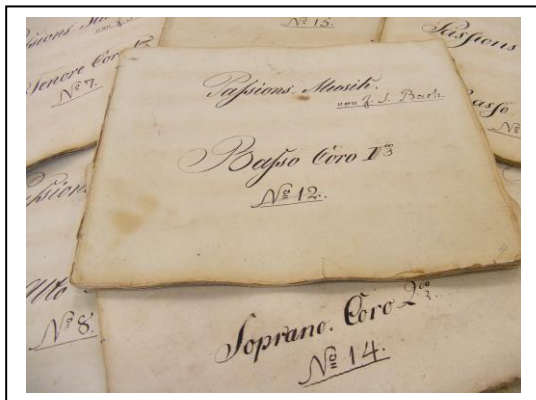 Passions
von J.
Tenore Coro
No 7.
No 15.
Passions
Basso
No
Passions Musik.
von J. S. Bach
Basso Coro Imo
No 12.
Alto
No 8.
Soprano. Coro 2do
No 14.